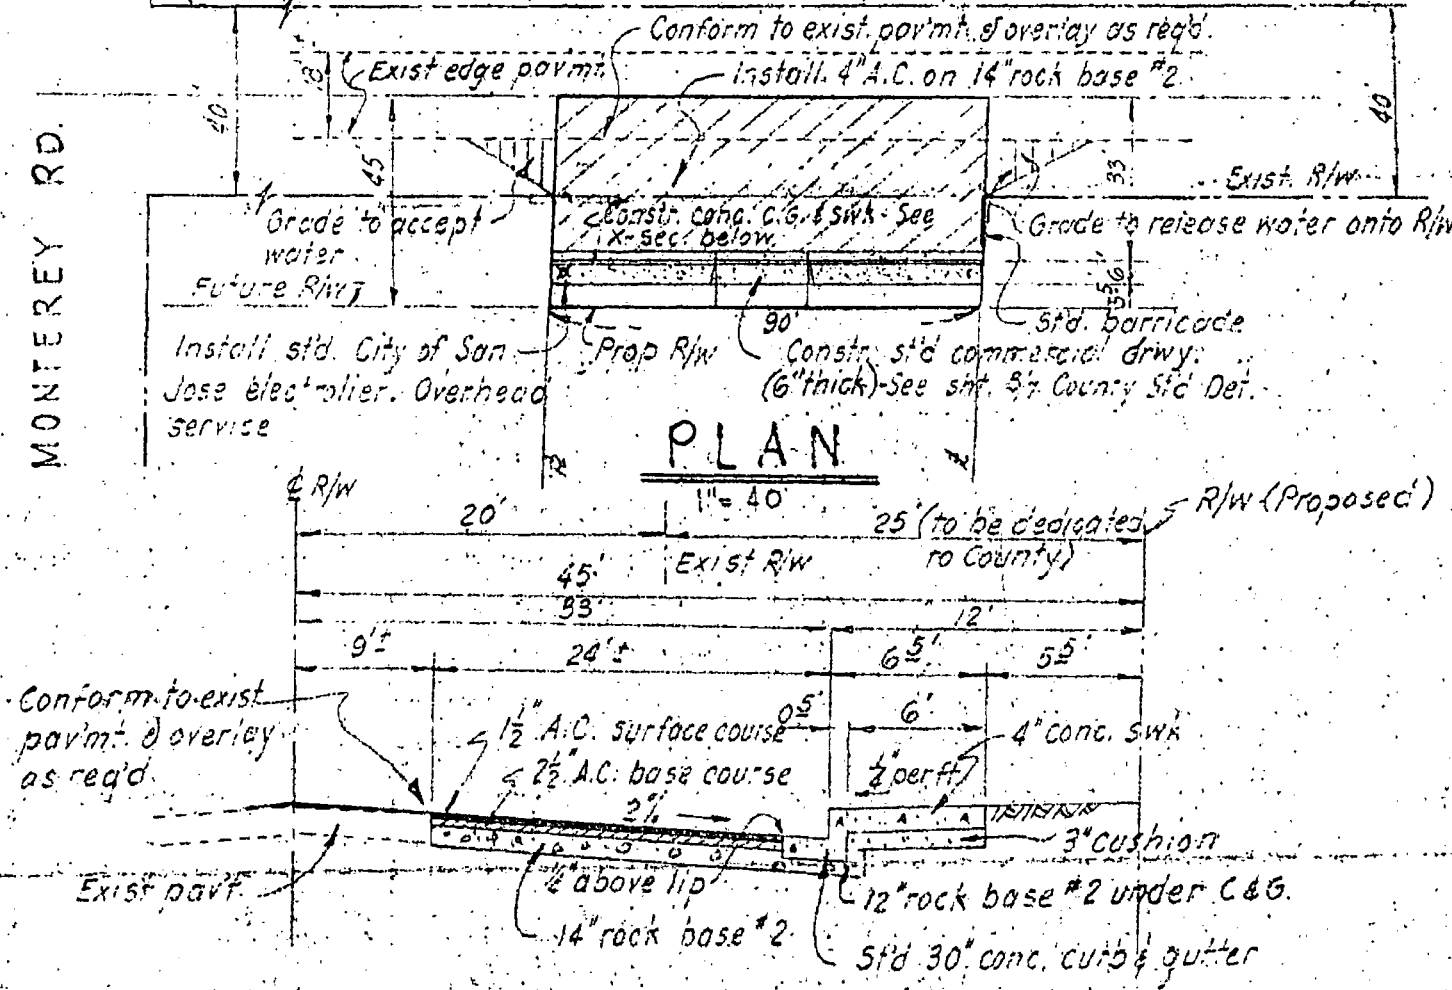 Conform to exist. pav'mt. & overlay as req'd.
Exist edge pavmt.
Install 4" A.C. on 14" rock base #2
18'
40'
40'
45'
33'
MONTEREY RD.
Exist. R/W
Grade to accept
water
Constr. conc. C.G. & swk - See
X-sec. below
Grade to release water onto R/W
Future R/W
6'
5 5'
90'
Std. barricade
Install std. City of San
Jose electrolier. Overhead
service
Prop R/W
Constr. st'd commercial drwy.
(6" thick)-See sht. County Std Det.
PLAN
1"= 40'
℄ R/W
20'
25' (to be dedicated
ro County)
R/W (Proposed)
Exist R/W
45'
33'
12'
9'±
24'±
6 5'
5 5'
Conform to exist
pav'mt. & overlay
as req'd.
1 1/2" A.C. surface course
0 5'
6'
4" conc. swk
2 1/2" A.C. base course
1/4" per ft
2%
3" cushion
Exist pav't.
1/2" above lip
12" rock base #2 under C&G.
14" rock base #2
St'd 30" conc. curb & gutter